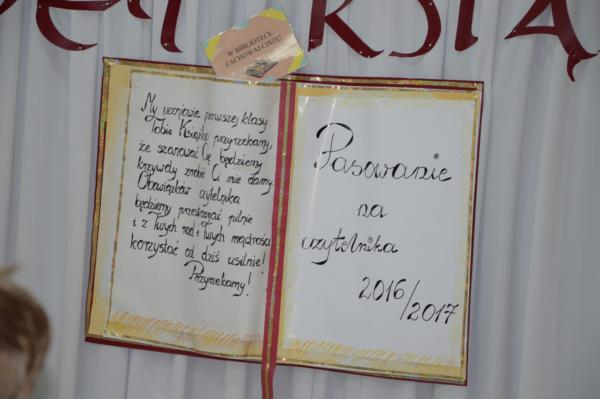 W BIBLIOTECE
ZACHOWAJ CISZĘ!
My uczniowie pierwszej klasy
Tobie Książko przyrzekamy,
że szanować Cię będziemy
krzywdy zrobić Ci nie damy.
Obowiązków czytelnika
będziemy przestrzegać pilnie
i z Twych rad i Twych mądrości
korzystać od dziś usilnie!
Przyrzekamy!
Pasowanie
na
czytelnika
2016/2017